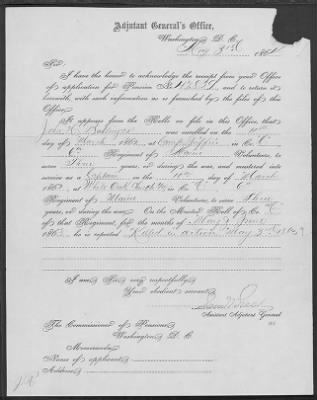 Adjutant General's Office,
Washington, D. C.
Nov 3rd, 186
Sir:
I have the honor to acknowledge the receipt from your Office
of application for Pension No. and to return it
herewith, with such information as is furnished by the files of this
Office.
It appears from the Rolls on file in this Office, that
John C. was enrolled on the 10th
day of March 1862, at Camp Griffin in Co. "C"
6th Regiment of Maine Volunteers, to serve
Three years, or during the war, and mustered into
service as a Captain on the 10th day of March
1862, at White Oak Church Va, in Co. "C" 6th
Regiment of Maine Volunteers, to serve Three
years, or during the war. On the Muster Roll of Co. "C"
of that Regiment, for the months of May & June
1863, he is reported Killed in action May 3rd 1863
I am Sir, very respectfully
Your obedient servant,
Assistant Adjutant General
The Commissioner of Pensions
Washington D. C.
Memoranda:
Name of applicant
Address